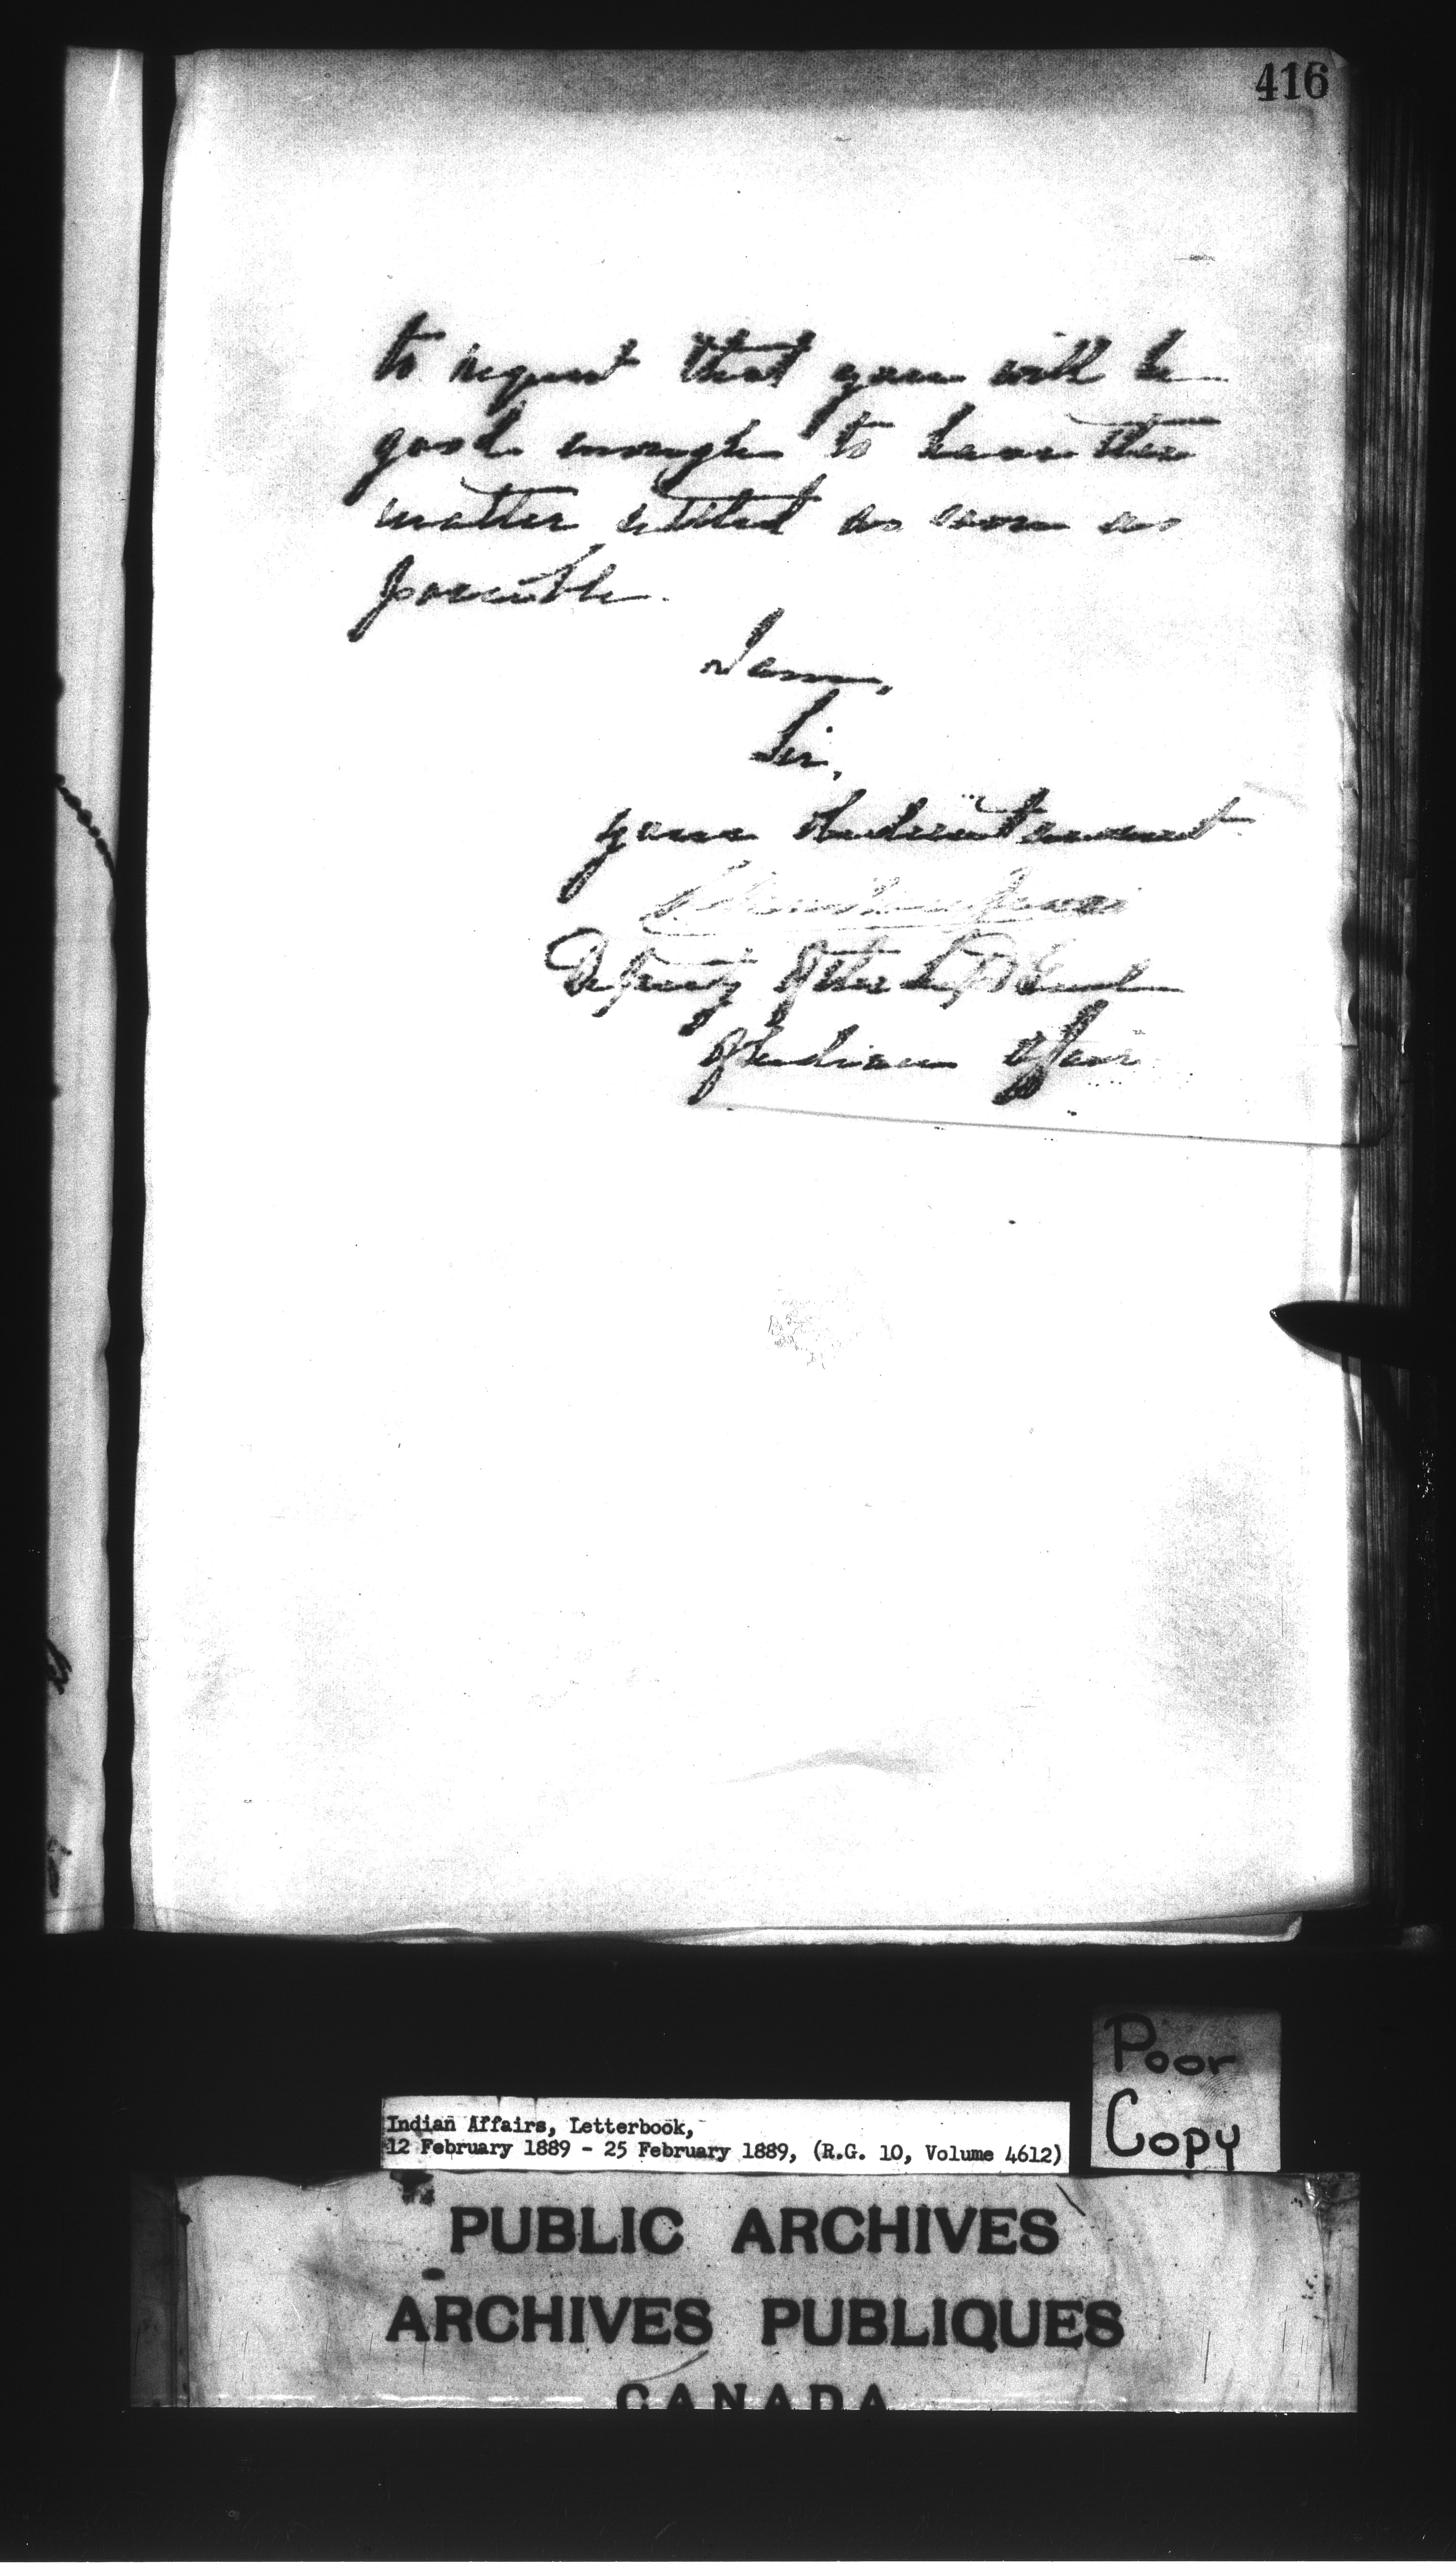 416
to request that you will be
good enough to have this
matter settled as soon as
possible.
I am,
Sir,
Your obedient servant
Deputy of the Supt Genl
of Indian Affairs
Poor
Copy
Indian Affairs, Letterbook,
12 February 1889 - 25 February 1889, (R.G. 10, Volume 4612)
PUBLIC ARCHIVES
ARCHIVES PUBLIQUES
CANADA